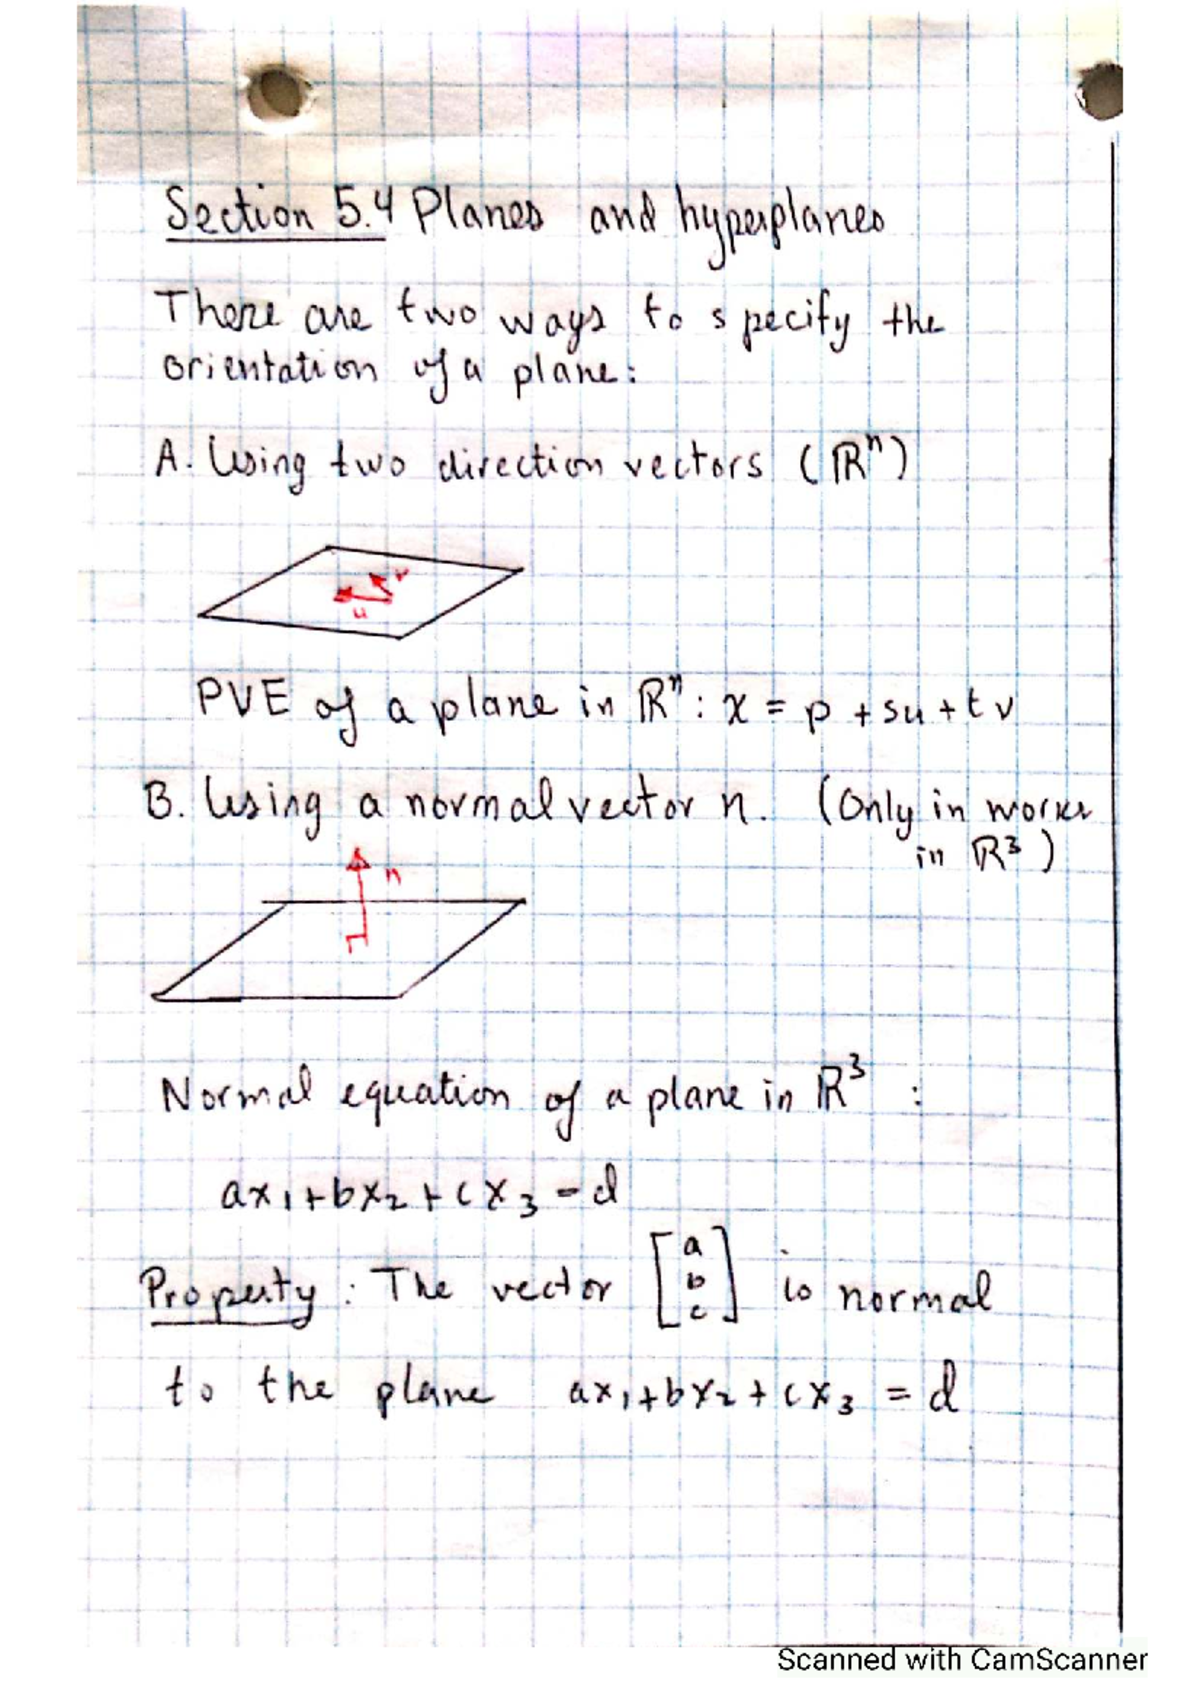 Section 5.4 Planes and hyperplanes
There are two ways to specify the
orientation of a plane:
A. Using two direction vectors (ℝⁿ)
v
u
PVE of a plane in ℝⁿ: x = p + su + tv
B. Using a normal vector n. (Only in works
in ℝ³)
n
Normal equation of a plane in ℝ³ :
ax₁+bx₂+cx₃=d
Property: The vector [a b c] is normal
to the plane ax₁+bx₂+cx₃ = d
Scanned with CamScanner